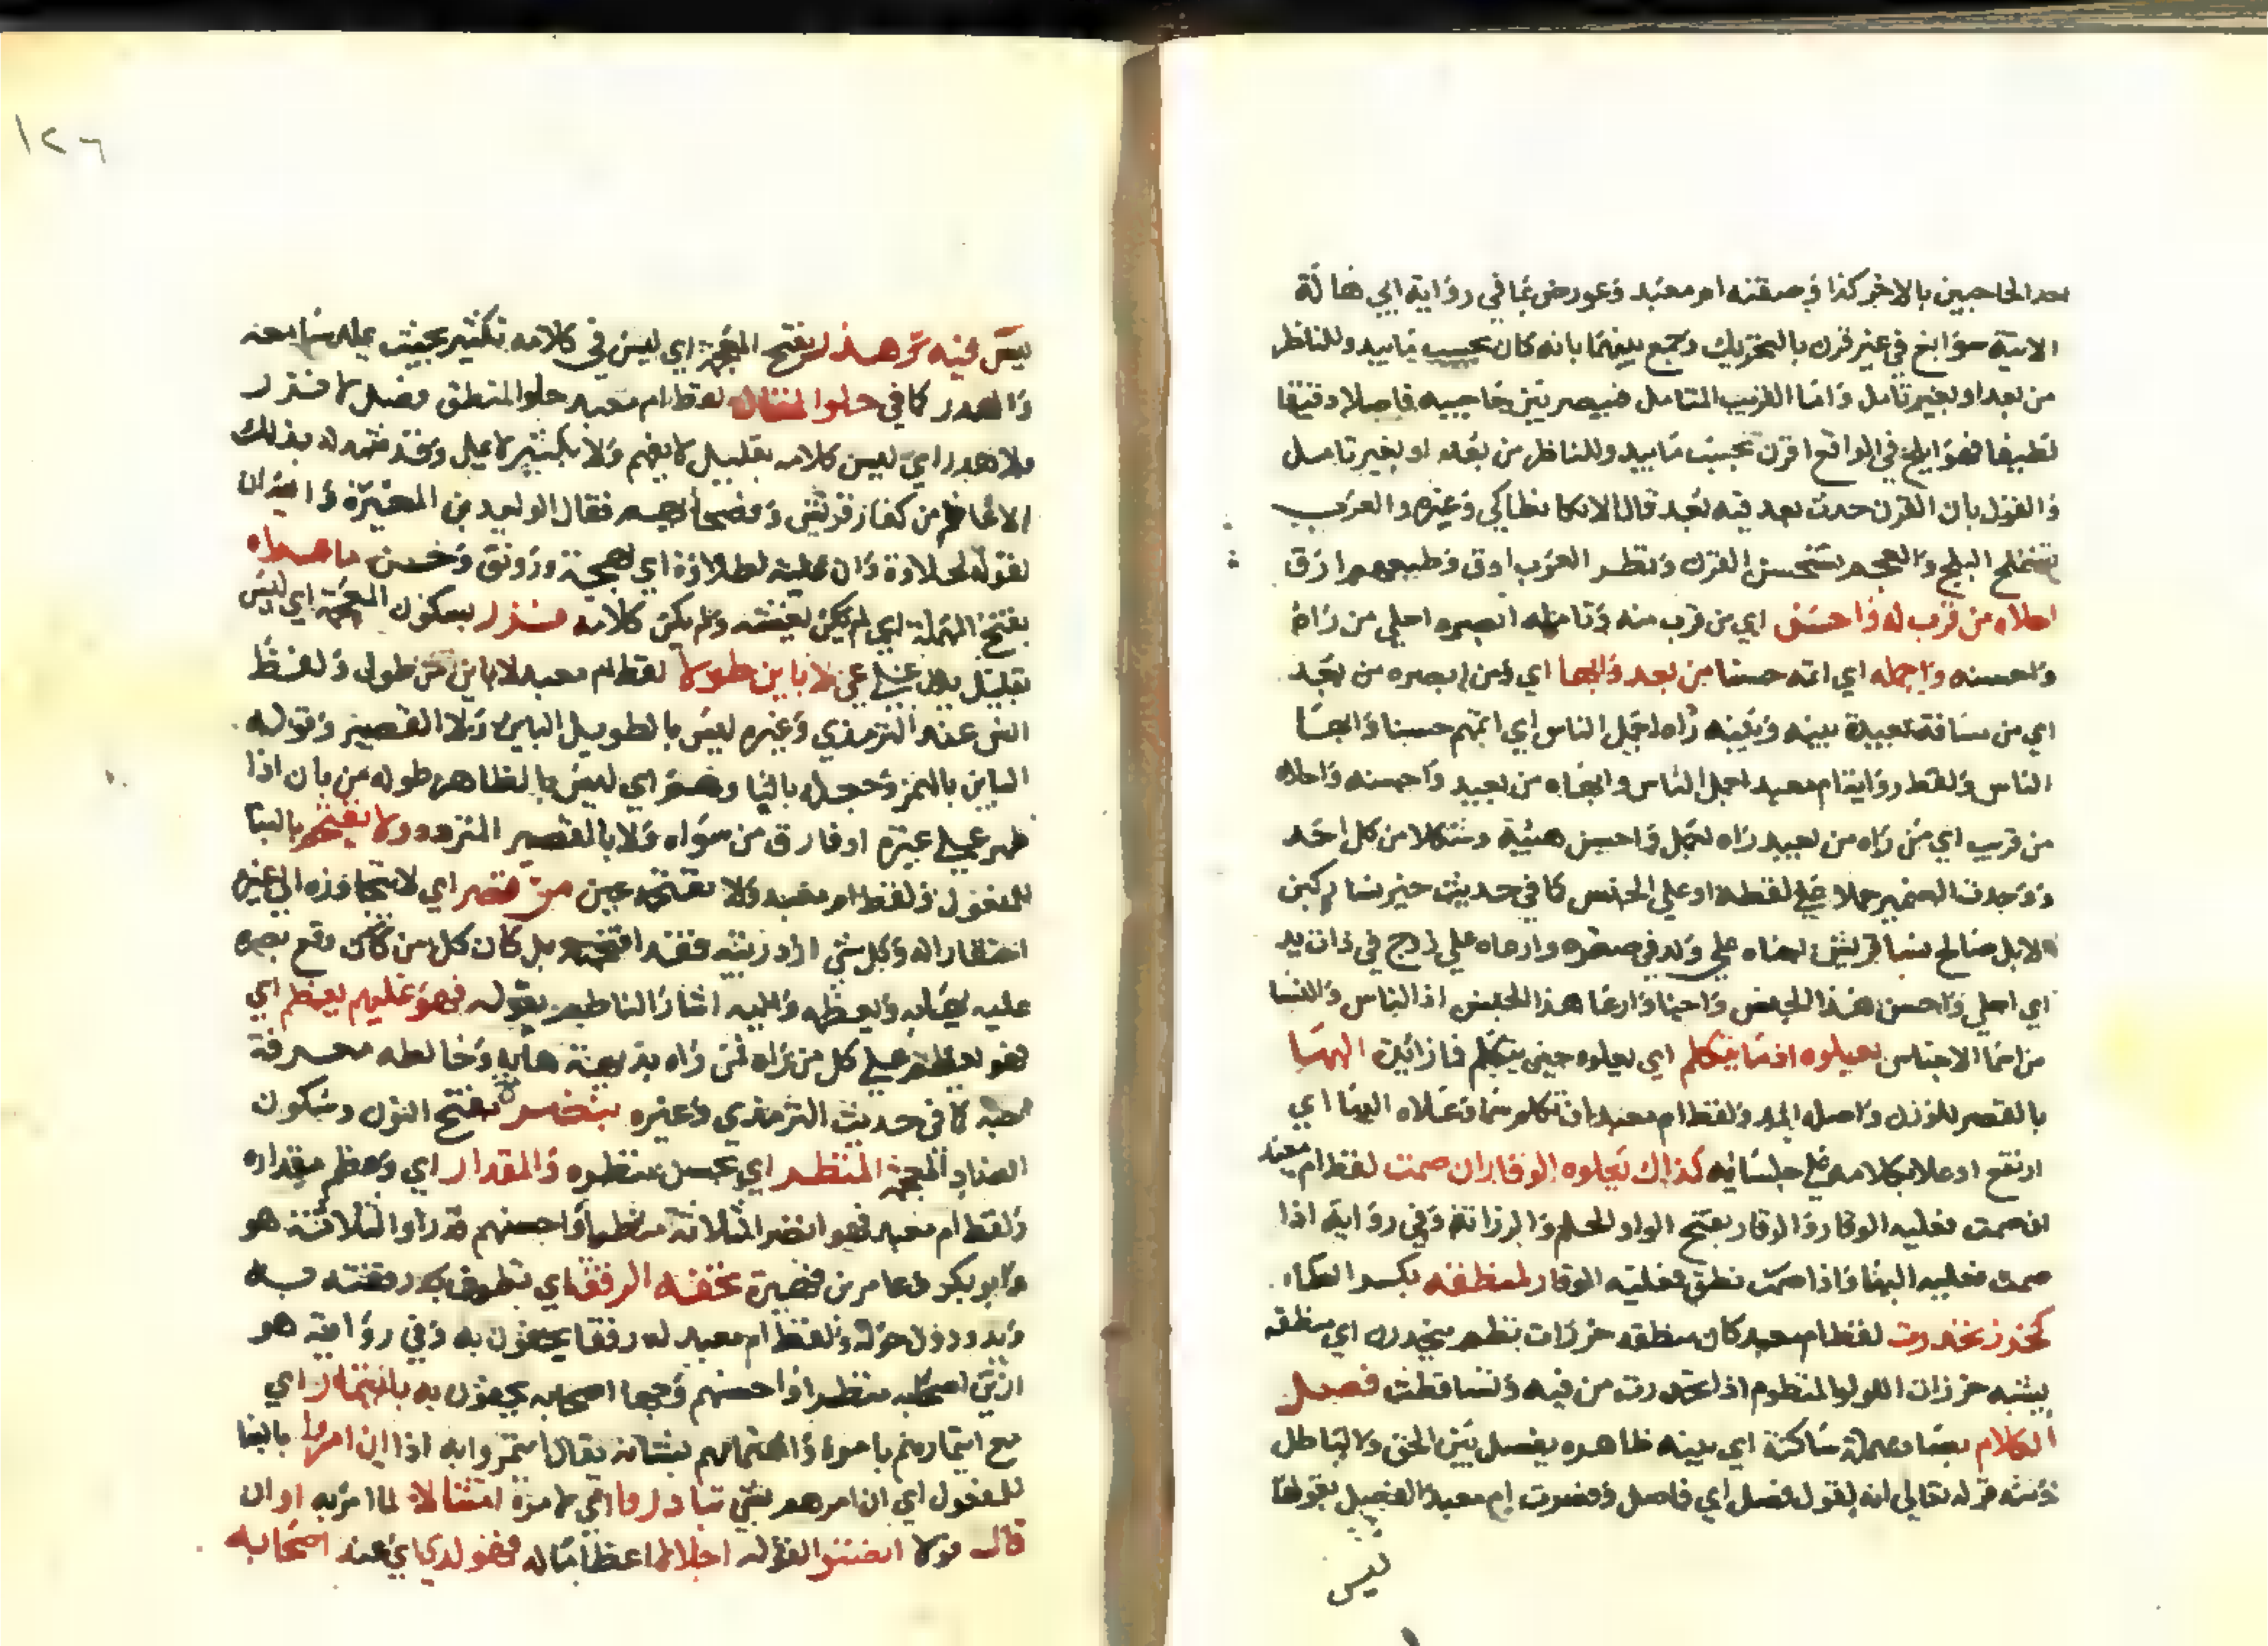 احد الحاجبين بالاخر كذا وصفته ام معبد وعورض بما في رواية ابي هالة
الاتية سوابغ في غير قرن بالتحريك وجمع بينهما بانه كان بحسب ما يبدو للناظر
من بعد او بغير تأمل واما القريب المتامل فيبصر بين حاجبيه فاصلا دقيقا
لطيفا فهو ابلج في الواقع اقرن بحسب ما يبدو للناظر من بعد او بغير تامل
والقول بان القرن حدث بعد فيه بعد قال الانطاكي وغيره والعرب
تستملح البلج والعجم تستحسن القرن ونظر العرب ادق وطبعهم ارق
احلاه من قرب له واحسنه اي من قرب منه وتامله ابصره احلى من راه
واحسنه واجمله اي اتمه حسنا من بعد وابهاه اي ومن ابصره من بعد
اي من مسافة بعيدة بينه وبينه راه اجمل الناس اي اتمهم حسنا وابها
الناس ولفظ رواية ام معبد اجمل الناس وابهاه من بعيد واحسنه واحلاه
من قريب اي من راه من بعيد راه اجمل واحسن هيئة وشكلا من كل احد
ووجدت الضمير حملا على لفظه او على الجنس كما في حديث خير نسا ركبن
الابل صالح نسا قريش احناه على ولد في صغره وارعاه على زوج في ذات يد
اي احلى واحسن هذا الجنس واحنا وارعا هذا الجنس اذ الناس والنسا
من اسما الاجناس يعلوه اذ ما يتكلم اي يعلوه حين يتكلم فا زائدة البها
بالقصر للوزن واصله المد ولفظ ام معبد ان تكلم سما وعلاه البها اي
ارتفع او علا بكلامه على جلسائه كذاك يعلوه الوقار ان صمت لفظ ام معبد
ان صمت فعليه الوقار والوقار بفتح الواو الحلم والرزانة وفي رواية اذا
صمت فعليه البها واذا صمت نطق فعليه الوقار لمنطقه بكسر الطاء
كخرز تحدرت لفظ ام معبد كان منطقه خرزات نظم يتحدرن اي منطقه
يشبه خرزات اللولو المنظوم اذا تحدرت من فيه وتساقطت فصل
الكلام بصاد مهملة ساكنة اي بينه ظاهره يفصل بين الحق والباطل
ومنه قوله تعالى انه لقول فصل اي فاصل وفسرت ام معبد الفصل بقولها
ليس
١٢٦
ليس فيه هذر بفتح المعجمة اي ليس في كلامه تكثير بحيث يمله سامعه
والهدر كما في حلو المقال لفظ ام معبد حلو المنطق فصل لا نزر
ولا هذر اي ليس كلامه بقليل لا يفهم ولا بكثير لا يمل وقد شهد له بذلك
الاعاظم من كفار قريش وفصحائهم فقال الوليد بن المغيرة وا ان
لقوله لحلاوة وان عليه لطلاوة اي بهجة ورونق وحسن ما
بفتح المهملة اي لم يكن ولم يكن كلامه نزر بسكون المعجمة اي ليس
بقليل يدل على عي لا باين طولا لفظ ام معبد لا باين من طول ولفظ
انس عند الترمذي وغيره ليس بالطويل الباين ولا القصير وقوله
الباين بالهمز وجعله باليا وهم اي ليس بالظاهر طوله من بان اذا
ظهر على غيره او فارق من سواه ولا بالقصير المتردد ولا يقتحم بالبنا
للمفعول ولفظ ام معبد ولا تقتحمه عين من قصر اي لا تتجاوزه الى غيره
احتقارا له وكل شي ازدريته فقد اقتحمته بل كان كل من وقع بصره
عليه يهابه ويعظمه واليه اشار الناظم بقوله فهو عليهم يعظم اي
فهو يعظم على كل من راه لمن راه بديهة هابه وخالطه معرفة
احبه كما في حديث الترمذي وغيره بنضر بفتح النون وسكون
الضاد المعجمة المنظر اي بحسن منظره والمقدار اي وعظم مقداره
ولفظ ام معبد فهو انضر الثلاثة منظرا واحسنهم قدرا والثلاثة هو
وابو بكر وعامر بن فهيرة تحفه الرفقة اي تطوف به رفقته به
ويدورون حوله ولفظ ام معبد له رفقا يحفون به وفي رواية هو
انضر اصحابه منظرا واحسنهم وجها اصحابه يحفون به بائتمار اي
مع ايتمارهم بامره واهتمامهم بشانه يقال ائتمروا به اذا ان امروا بالبنا
للمفعول اي ان امرهم بشي تبادروا اي لامره امتثالا لما امر به او ان
قال قولا انصتوا لقوله اجلالا اعظاما له فهو لدى اي عند اصحابه